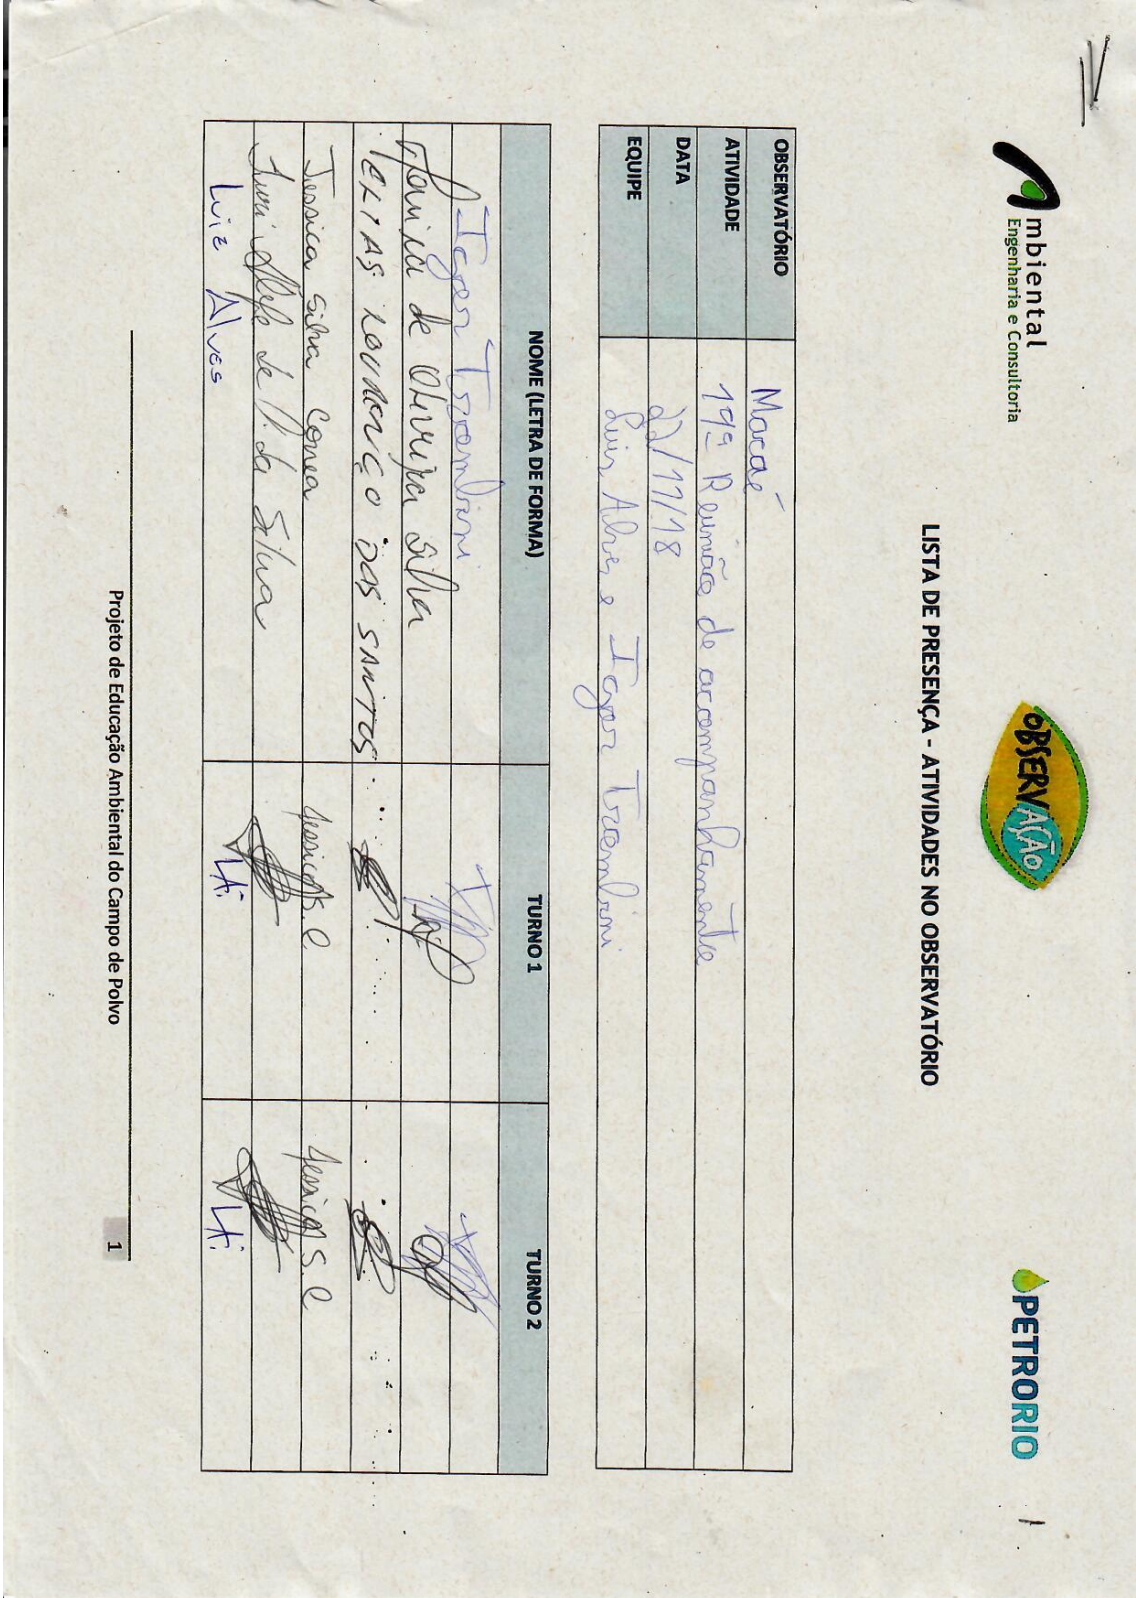 Ambiental
Engenharia e Consultoria
OBSERVAÇÃO
PETRORIO
LISTA DE PRESENÇA - ATIVIDADES NO OBSERVATÓRIO
OBSERVATÓRIO Macaé
ATIVIDADE 19ª Reunião de acompanhamento
DATA 22/11/18
EQUIPE Luiz Alves e Igor Trombini
NOME (LETRA DE FORMA) TURNO 1 TURNO 2
Igor Trombini
de Oliveira Silva
ELIAS LOURENÇO DOS SANTOS
Jessica Silva Correa Jessica S. C Jessica S. C
de da Silva
Luiz Alves
Projeto de Educação Ambiental do Campo de Polvo
1